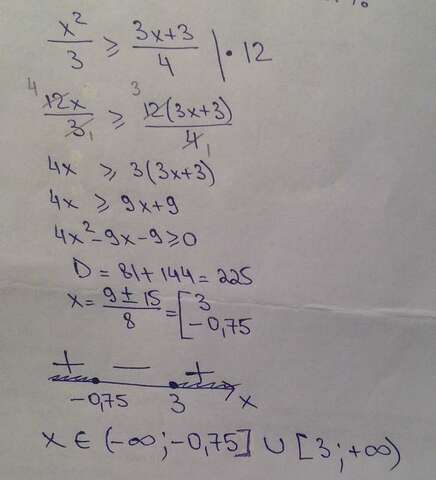 x²/3 ≥ (3x+3)/4 | · 12
4 12x/3 1 ≥ 3 12(3x+3)/4 1
4x ≥ 3(3x+3)
4x ≥ 9x+9
4x²-9x-9≥0
D = 81+144=225
x= (9±15)/8 = [3 -0,75
+ — +
-0,75 3 x
x ∈ (-∞;-0,75] ∪ [3;+∞)